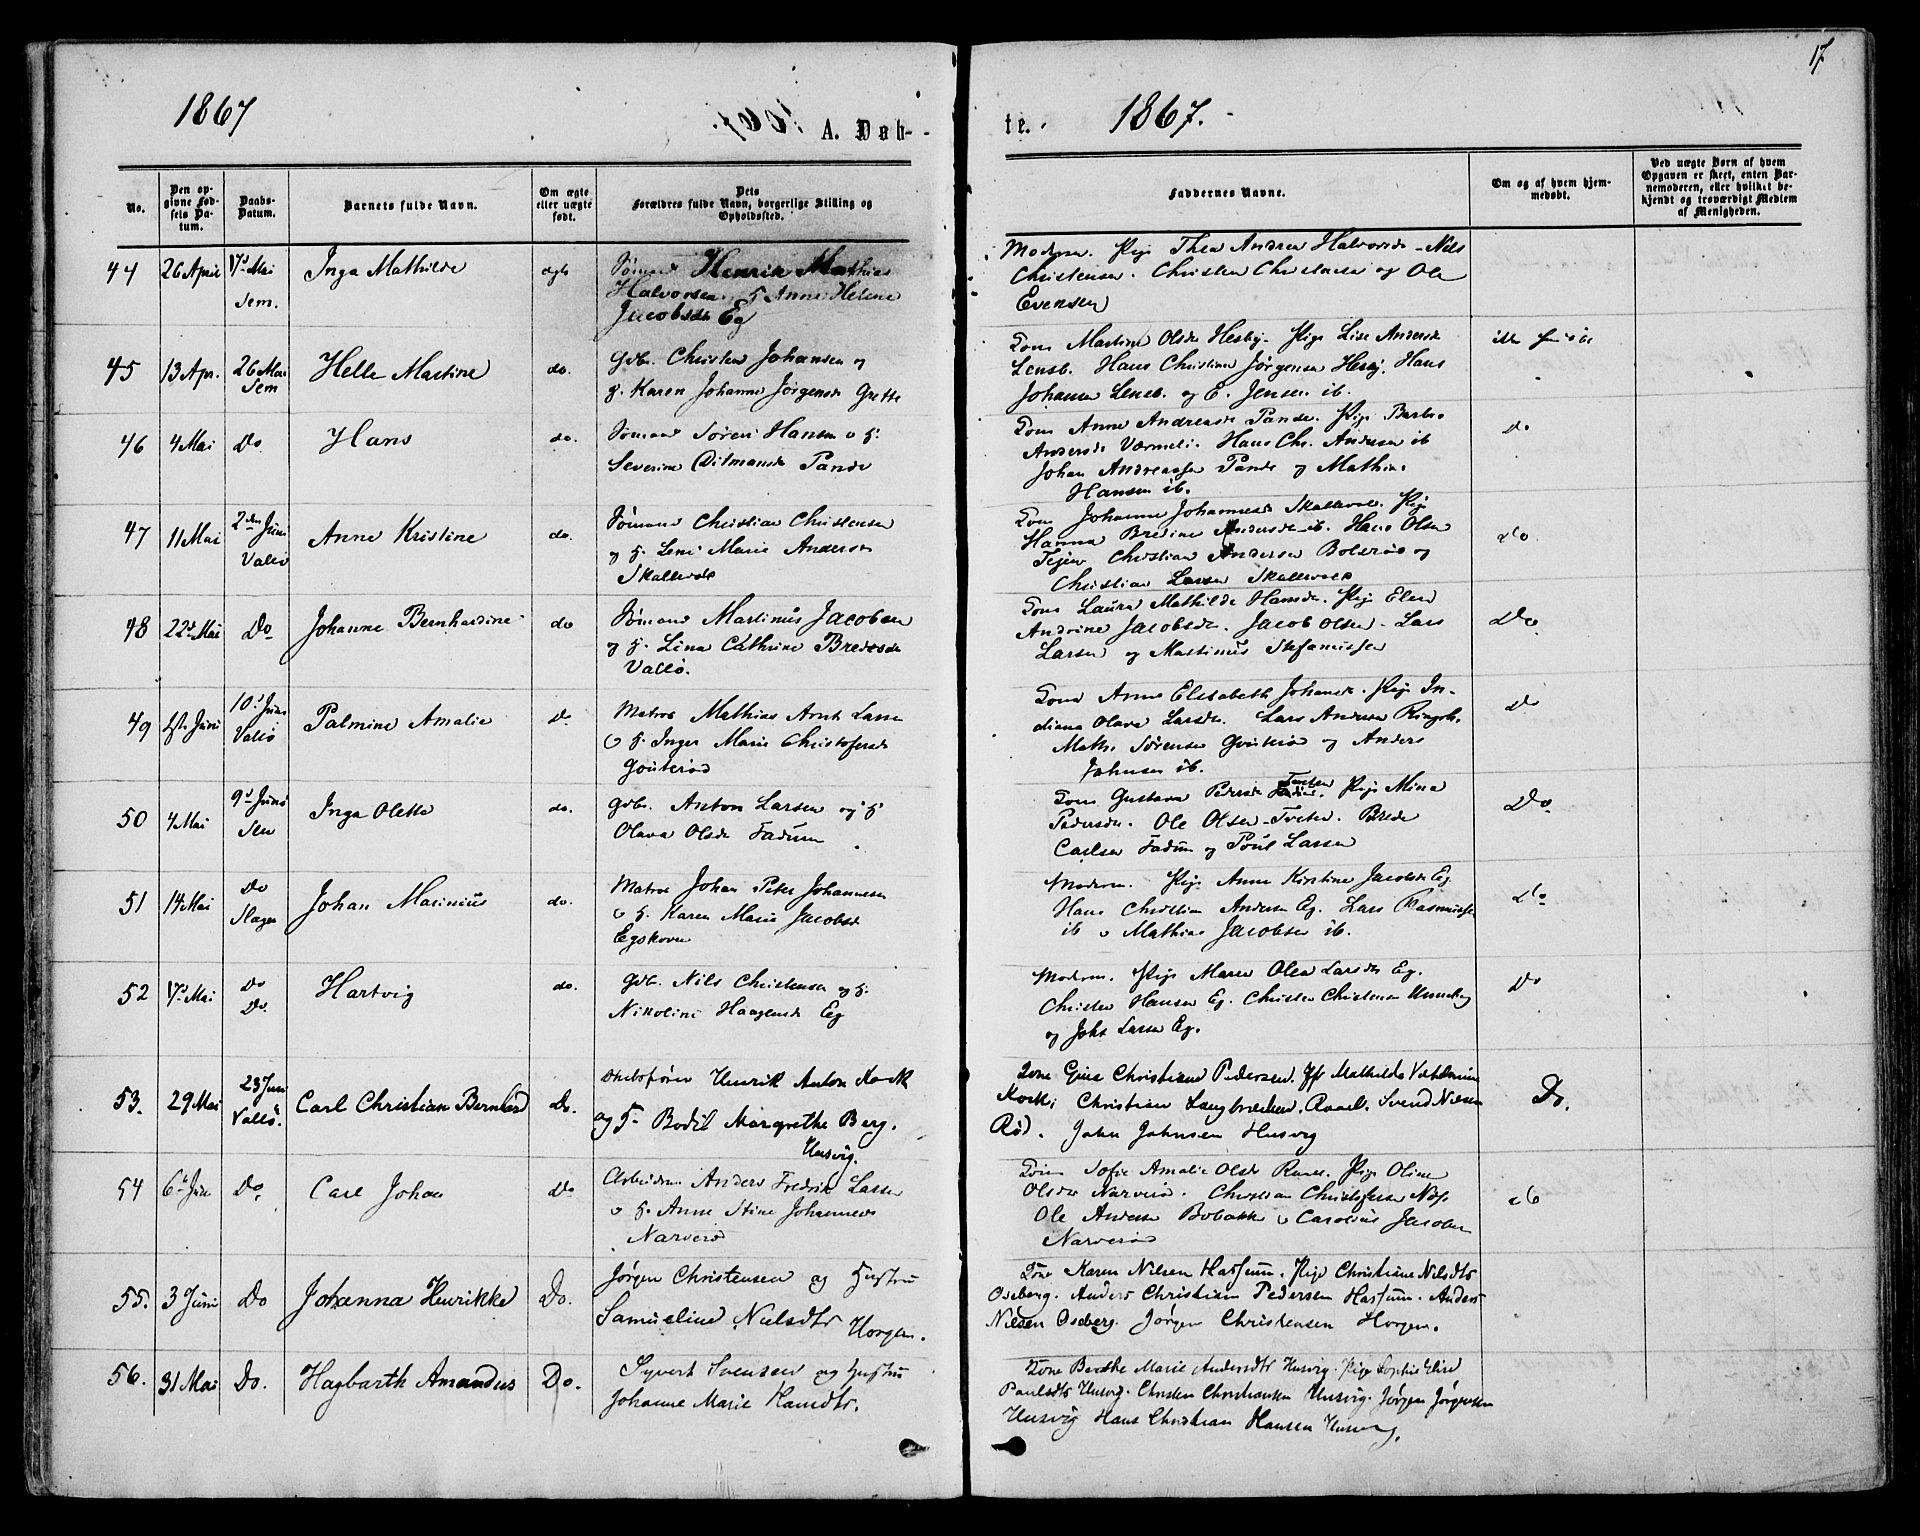 17
1867
A. Døb-
te.
1867.
No.
Den op-
givne Fød-
sels Da-
tum.
Daabs-
Datum.
Barnets fulde Navn.
Om ægte
eller uægte
født.
Dets
Forældres fulde Navn, borgerlige Stilling og
Opholdssted.
Faddernes Navne.
Om og af hvem hjem-
medøbt.
Ved uægte Børn af hvem
Opgaven er skeet, enten Bar-
nemoderen, eller hvilket be-
kjendt og troværdigt Medlem
af Menigheden.
44
26 April
Mai
Sem.
Inga Mathilde
ægte
Sømand Henrik Mathias
Halvorsen Anne Helene
Jacobsdr Eg
Moderen. Pige Thea Andrea Halvorsdr - Nils
Christensen. Christen Christensen og Ole
Evensen
45
13 Apr.
26 Mai
Sem
Helle Martine
do.
Gdb. Christen Johansen og
Karen Johanne Jørgensdr Grette
Martine Olsdr Hesby. Pige Lise Andersdr
Lensb. Hans Christian Jørgensen Hesby. Hans
Johansen Lensb. og E. Jensen ib.
46
4 Mai
Do
Hans
do.
Sømand Søren Hansen
Severine Ditmansdr Pande
Anne Andreasdr Pande. Pige
Andersdr Værmeli. Hans Chr. Andersen ib
Johan Andreassen Pande og Mathias
Hansen ib.
Do
47
11 Mai
2den Juni
Vallø
Anne Kristine
do.
Sømand Christian Christensen
og Marie Andersdr
Skallevold
Johanne Johannesdr Skallevold. Pige
Hanna Bredine Andersdr ib. Hans Olsen
Christian Andersen Bolærne og
Christian Larsen Skallevold
do
48
22 Mai
Do
Johanne Bernhardine
do
Sømand Martinus Jacobsen
og Lina Cathrine Bredesdr
Vallø.
Laura Mathilde Hansdr. Pige Elen
Andrine Jacobsdr. Jacob Olsen - Lars
Larsen og Martinus Stefanussen
Do
49
Juni
10 Juni
Vallø
Palmine Amalie
Do
Matros Mathias Arnt Larsen
Inger Marie Christofersdr
Gouterød
Anne Elisabeth Johansdr. Pige In-
diana Olava Larsdr. Lars Andersen
Math. Sørensen Gouterød og Anders
Johnsen ib.
Do
50
4 Mai
9 Juni
Sem
Inga Olette
do.
Gdb. Anton Larsen og
Olava Olsdr Fadum
Gustava Pedersdr Tveten. Pige Mina
Pedersdr. Ole Olsen Tveten. Brede
Carlsen Fadum og Poul Larsen
Do
51
14 Mai
Do
Slagen
Johan Marinius
do.
Matros Johan Peter Johannesen
Karen Marie Jacobsdr
Egskoven
Moderen. Pige Anne Kirstine Jacobsdr Eg
Hans Christian Andersen Eg. Lars Rasmussen
ib Mathias Jacobsen ib.
do
52
Mai
Do
Do.
Hartvig
do.
Gdb. Nils Christensen og
Nikoline Haagensdr Eg
Moderen. Pige Maren Olea Larsdr Eg.
Christen Hansen Eg. Christen Christensen Unneberg
og Johs Larsen Eg.
Do
53.
29 Mai
23 Juni
Vallø.
Carl Christian Bernhard
Do.
Skibsfører Henrik Anton Kock
og Bodil Margrethe Berg.
Husvig.
Kone Gina Christiane Pedersen. Mathilde
Kock; Christian Langbrekken. Svend Nilsen
Rød. John Johnsen Husvig
Do.
54
6 Juni
Do.
Carl Johan
Do
Arbeidsm. Anders Fredrik Larsen
Anne Stine Johannesdr
Narverød
Sofie Amalie Olsdr. Pige Oline
Olsdr Narverød. Christian Christofersen
Ole Andersen Carolius Jacobsen
Narverød
do
55.
3 Juni
Do
Johanna Henrikke
Do.
Jørgen Christensen og Hustru
Samueline Nielsdtr Horgen.
Kone Karen Nilsen Hassum. Pige Christiane Nilsdtr
Oseberg. Anders Christian Pedersen Hassum. Anders
Nilsen Oseberg. Jørgen Christensen Horgen.
56.
31 Mai
Do.
Hagbarth Amandus
Do.
Syvert Svensen og Hustru
Johanne Marie Hansdtr.
Kone Berthe Marie Andersdtr Husvig. Pige Sophie Elise
Paulsdtr Husvig. Christen Christiansen Husvig. Jørgen Jørgensen
Husvig Hans Christian Hansen Husvig.